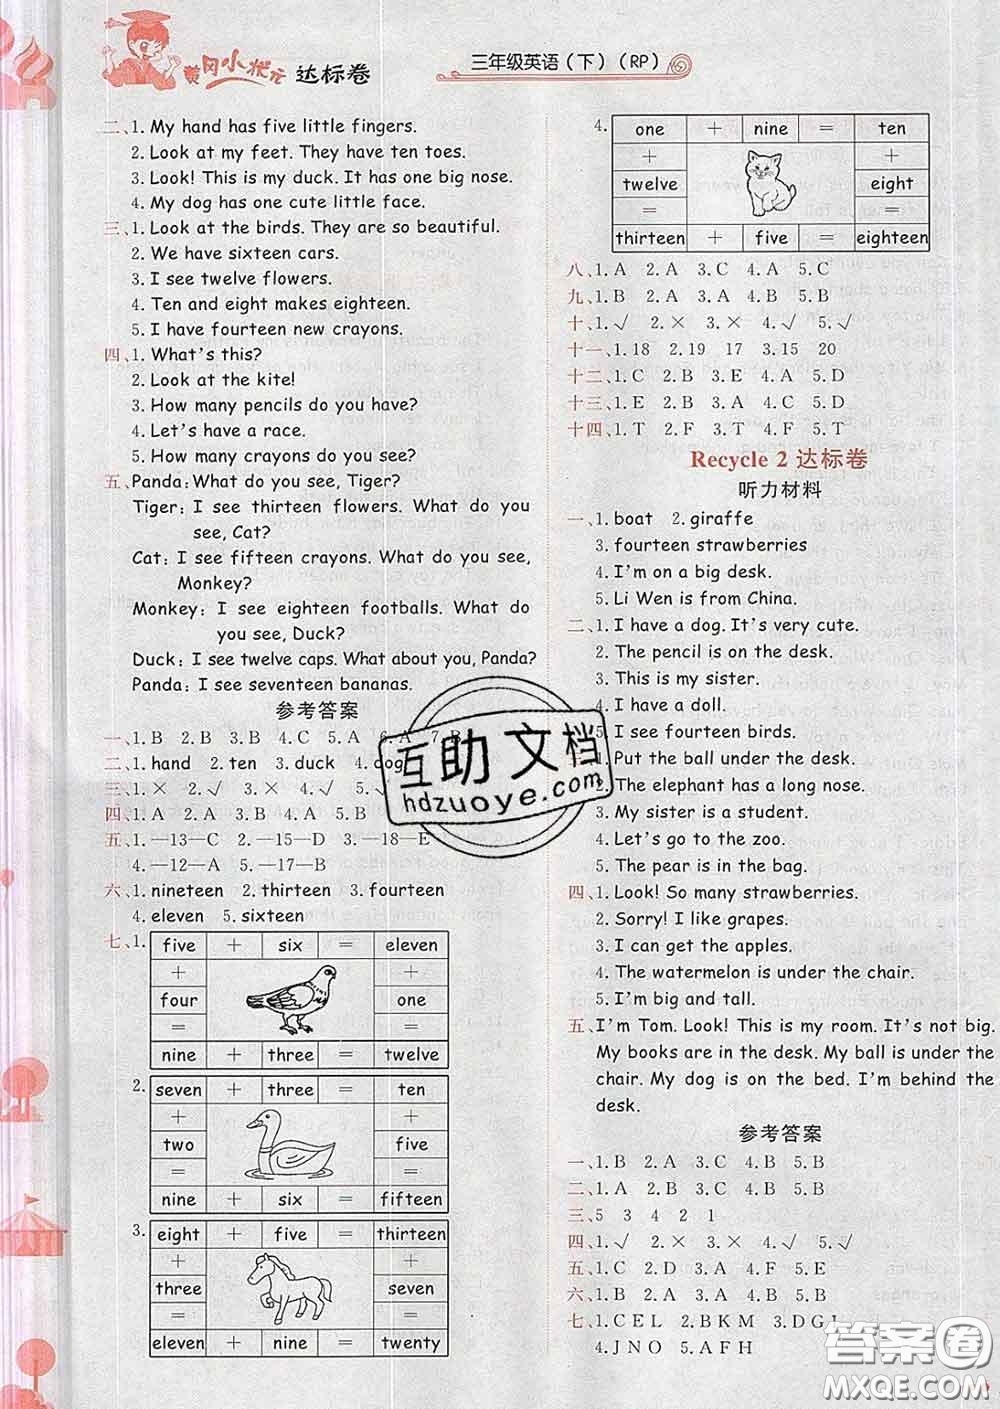 黄冈小状元 达标卷
三年级英语(下)(RP)
二、1. My hand has five little fingers.
2. Look at my feet. They have ten toes.
3. Look! This is my duck. It has one big nose.
4. My dog has one cute little face.
三、1. Look at the birds. They are so beautiful.
2. We have sixteen cars.
3. I see twelve flowers.
4. Ten and eight makes eighteen.
5. I have fourteen new crayons.
四、1. What's this?
2. Look at the kite!
3. How many pencils do you have?
4. Let's have a race.
5. How many crayons do you see?
五、Panda: What do you see, Tiger?
Tiger: I see thirteen flowers. What do you
see, Cat?
Cat: I see fifteen crayons. What do you see,
Monkey?
Monkey: I see eighteen footballs. What do
you see, Duck?
Duck: I see twelve caps. What about you, Panda?
Panda: I see seventeen bananas.
参考答案
一、1. B 2. B 3. B 4. C 5. A 6. A 7. B
二、1. hand 2. ten 3. duck 4. dog
三、1. × 2. √ 3. × 4. √ 5. √
四、1. A 2. A 3. B 4. A 5. B
五、1.—13—C 2.—15—D 3.—18—E
4.—12—A 5.—17—B
六、1. nineteen 2. thirteen 3. fourteen
4. eleven 5. sixteen
七、1. five + six = eleven
+ +
four one
= =
nine + three = twelve
2. seven + three = ten
+ +
two five
= =
nine + six = fifteen
3. eight + five = thirteen
+ +
three seven
= =
eleven + nine = twenty
4. one + nine = ten
+ +
twelve eight
= =
thirteen + five = eighteen
八、1. A 2. A 3. C 4. A 5. C
九、1. B 2. A 3. A 4. B 5. B
十、1. √ 2. × 3. × 4. √ 5. √
十一、1. 18 2. 19 17 3. 15 20
十二、1. C 2. B 3. E 4. A 5. D
十三、1. E 2. B 3. A 4. C 5. D
十四、1. T 2. F 3. T 4. F 5. T
Recycle 2 达标卷
听力材料
一、1. boat 2. giraffe
3. fourteen strawberries
4. I'm on a big desk.
5. Li Wen is from China.
二、1. I have a dog. It's very cute.
2. The pencil is on the desk.
3. This is my sister.
4. I have a doll.
5. I see fourteen birds.
1. Put the ball under the desk.
2. The elephant has a long nose.
3. My sister is a student.
4. Let's go to the zoo.
5. The pear is in the bag.
四、1. Look! So many strawberries.
2. Sorry! I like grapes.
3. I can get the apples.
4. The watermelon is under the chair.
5. I'm big and tall.
五、I'm Tom. Look! This is my room. It's not big.
My books are in the desk. My ball is under the
chair. My dog is on the bed. I'm behind the
desk.
参考答案
一、1. B 2. A 3. C 4. B 5. B
二、1. A 2. B 3. A 4. B 5. B
三、5 3 4 2 1
四、1. √ 2. × 3. × 4. √ 5. √
五、1. C 2. D 3. A 4. F 5. E
六、1. B 2. A 3. C 4. B 5. B
七、1. C E L 2. B K M 3. D G I
4. J N O 5. A F H
互助文档
hdzuoye.com
答案圈
MXQE.COM